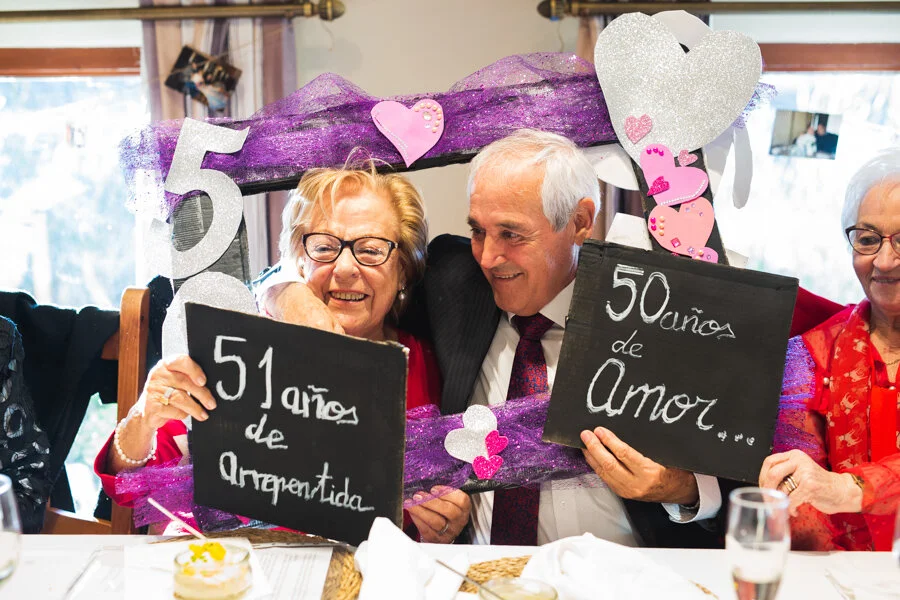 5
51 años
de
arrepentida
50 años
de
Amor...